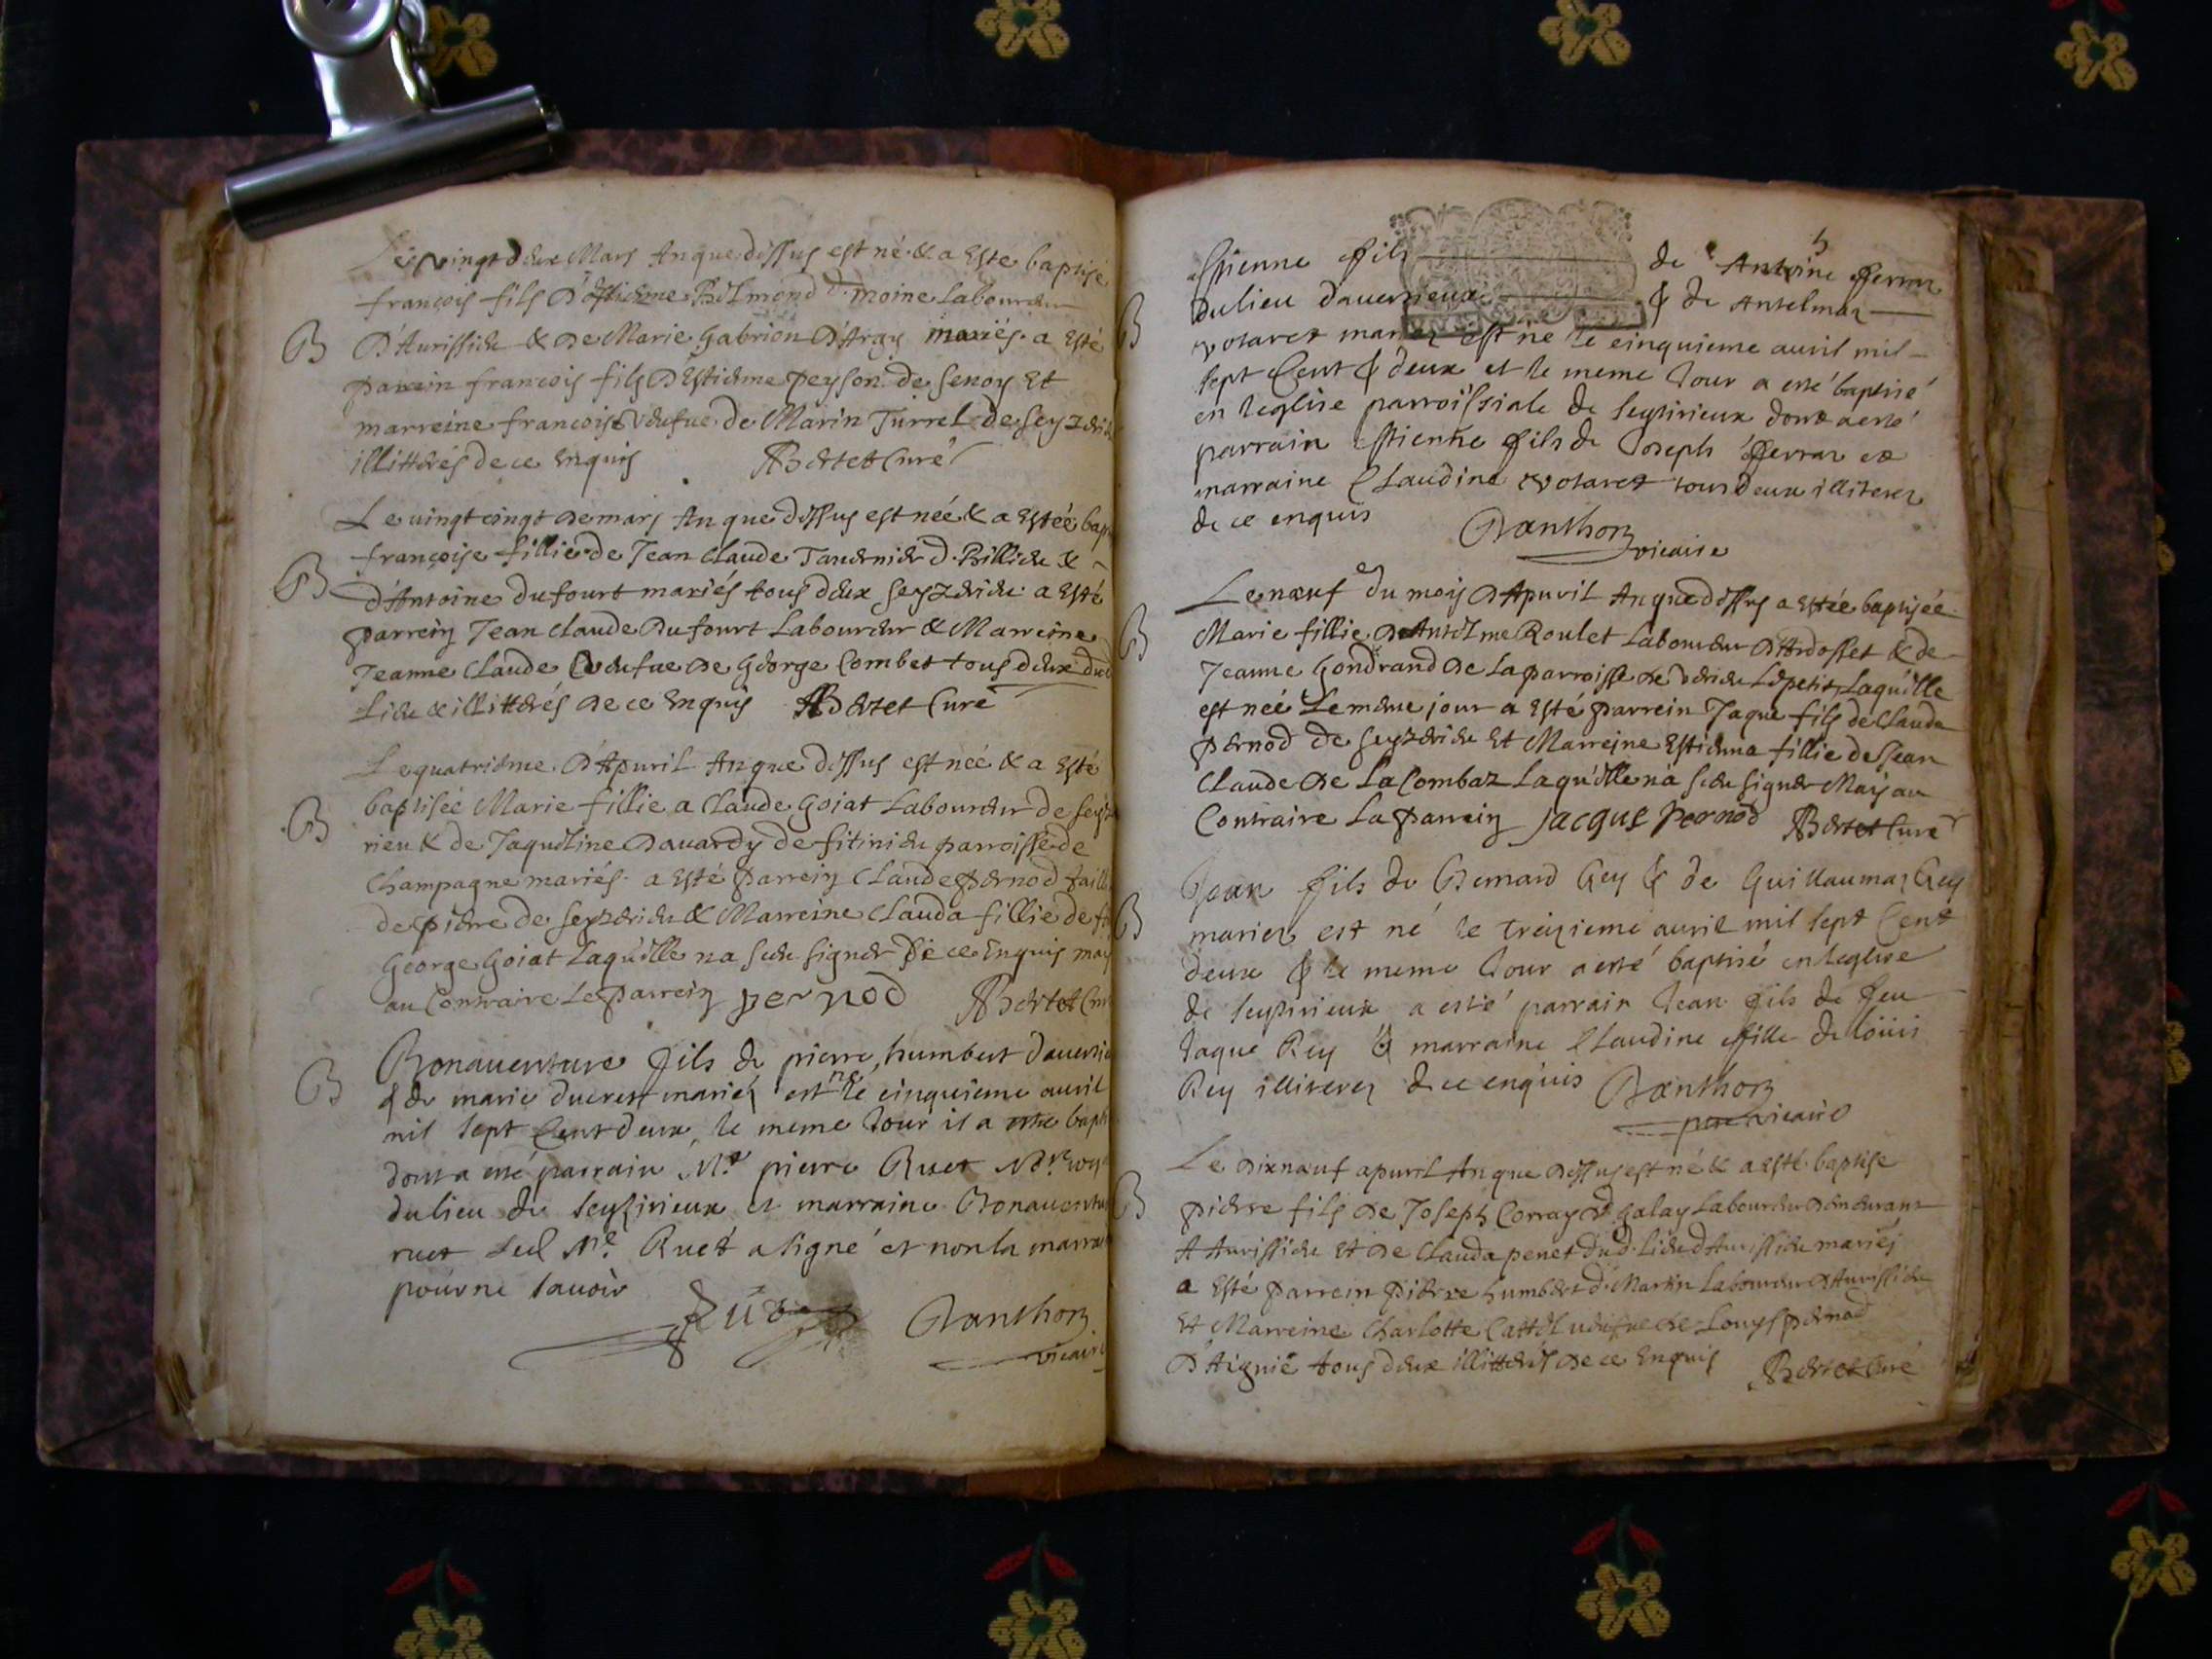 Le vingt deux Mars An que dessus est né & a Esté baptisé
françois fils d'Estienne Bolmond d. moine Laboureur
B D'Aurissieu & de Marie Gabrion D'Argy mariés. a Esté
parrein françois fils d'Estienne peyson de Senoy Et
marreine françoise veufue de Marin Turrel de Seyzeri
illitterés de ce Enquis Bertet Curé
Le uingt cinqt de mars An que dessus est née & a Estée bap
françoise fillie de Jean Claude Tauernier d. Billieu &
B d'Antoine dufourt mariés tous deux Seyzerieu a Esté
parrein Jean Claude Dufourt Laboureur & Marreine
Jeanne Claude veufue de George Combet tous deux dud
Lieu & illitterés de ce Enquis Bertet Curé
Le quatrieme d'Apuril An que dessus est née & a Esté
B baptisée Marie fillie a Claude Goiat Laboureur de Seyz
rieu & de Jaqueline Dauardy de fitinieu parroisse de
Champagne mariés. a Esté parrein Claude pernod
de pierre de Seyzerieu & Marreine Clauda fillie de
George Goiat Laquelle na sceu signer de ce Enquis may
au Contraire Le parrein pernod Bertet Cur
B Bonauenture fils de pierre humbert dauersi
& de marie ducrest mariez est né le cinquieme auril
mil sept Cent deux, le meme Jour il a esté bapt
dont a esté parrain Mre pierre Ruet
du lieu de seyzirieux et marraine Bonauentu
ruet Led Mre. Ruet a signé et non la marra
pour ne sauoir
Danthon
vicaire
5
Estienne fils de Antoine fferrar
B du lieu dauersieux & de Antelmaz
votaret mariez est né le cinquieme auril mil
sept Cent & deux et le meme Jour a esté baptisé
en leglise parroissiale de seyzirieux dont a esté
parrain Estienne fils de Joseph fferrar et
marraine Claudine votaret tous deux illiterez
de ce enquis Danthon
vicaire
Le neuf du moys d'Apuril An que dessus a Estée baptisée
B Marie fillie d'Antelme Roulet Laboureur d'Ardosset & de
Jeanne Gondrand de La parroisse de verieu Le petit, Laquelle
est née Le meme jour a Esté parrein Jaque fils de Claude
pernod de Seyzerieu Et Marreine Estienna fillie de Jean
Claude de La Combaz Laquelle na sceu signer Mays au
Contraire La parrein Jacque pernod Bertet Curé
Jean fils de Bernard Rey & de Guillaumaz Rey
B mariez est né le treizieme auril mil sept Cent
deux & le meme Jour a esté baptisé en leglise
de seyzirieux a esté parrain Jean fils de feu
Jaque Rey & marraine Claudine fille de Loüis
Rey illiterez de ce enquis Danthon
vicaire
Le dixneuf apuril An que dessus est né & a Esté baptise
B pierre fils de Joseph Corray d. galay Laboureur demeurant
A Aurissieu Et de Clauda penet dud. Lieu d'Aurissieu mariés
a Esté parrein pierre humbert d. Martin Laboureur d'Aurissieu
Et Marreine Charlotte Cattel veufue de Louys pernod
D'Aignié tous deux illitterés de ce Enquis Bertet Curé